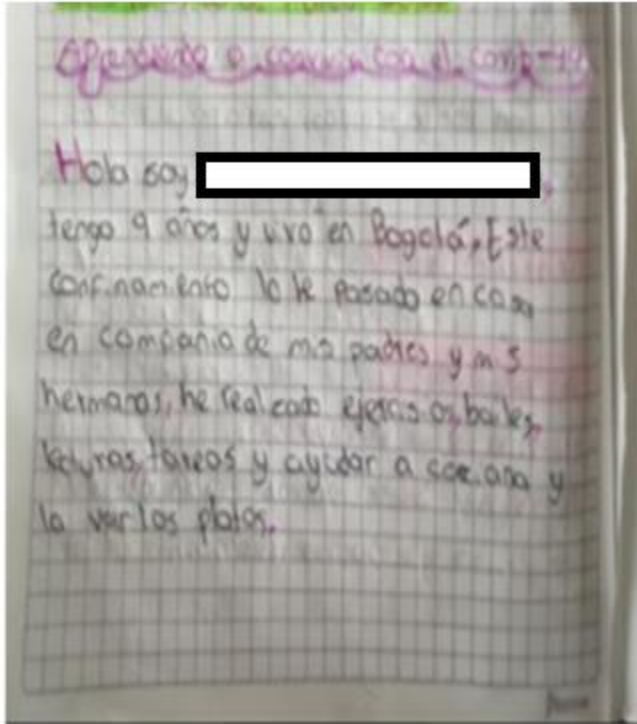 Aprendiendo a convivir con el comp-19
Hola soy
tengo 9 años y vivo en Bogotá, Este
confinamiento lo he pasado en casa
en compañia de mis padres y mis
hermanos, he realizado ejercicios, bailes,
lecturas, tareas y ayudar a cocinar y
la var los platos.